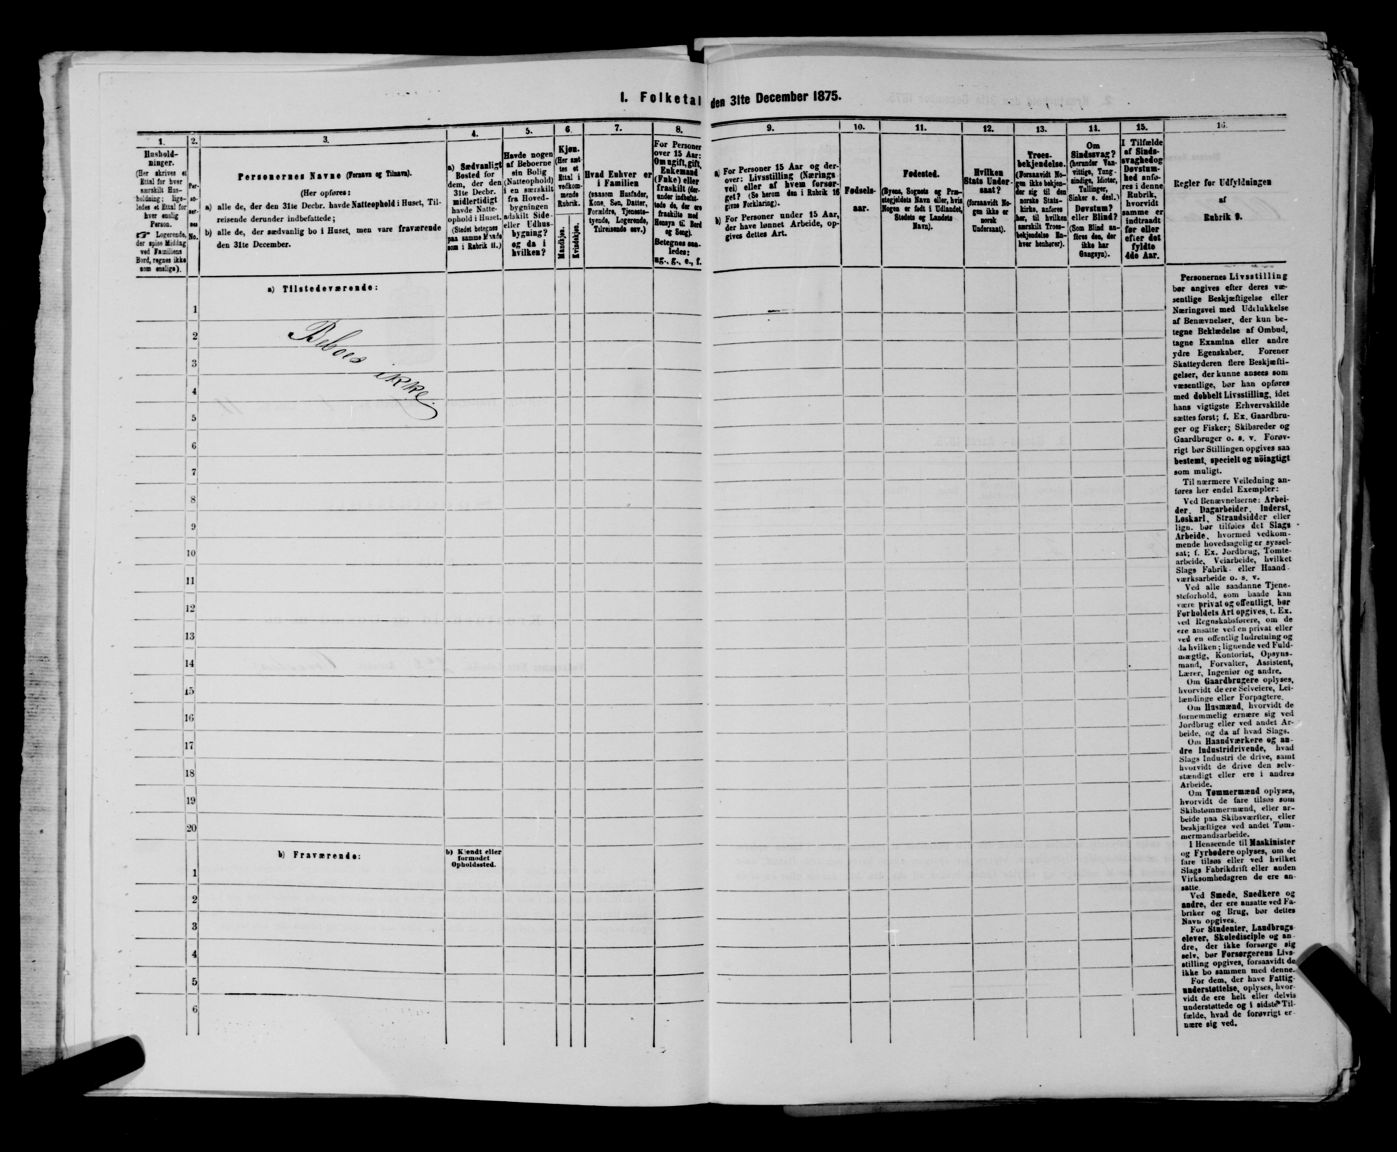 I. Folketal den 31te December 1875.
1.
Hushold-
ninger.
(Her skrives et
Ettal for hver
særskilt Hus-
holdning; lige-
ledes et Ettal for
hver enslig
Person.
☞ Logerende,
der spise Middag
ved Familiens
Bord, regnes ikke
som enslige).
2.
Per-
so-
ner-
nes
No.
3.
Personernes Navne (Fornavn og Tilnavn).
(Her opføres:
a) alle de, der den 31te Decbr. havde Natteophold i Huset, Til-
reisende derunder indbefattede;
b) alle de, der sædvanlig bo i Huset, men vare fraværende
den 31te December.
4.
a) Sædvanligt
Bosted for
dem, der den
31te Decbr.
midlertidigt
havde Natte-
ophold i Huset.
(Stedet betegnes
paa samme Maade
som i Rubrik 11.)
5.
Havde nogen
af Beboerne
sin Bolig
(Natteophold)
i en særskilt
fra Hoved-
bygningen
adskilt Side-
eller Udhus-
bygning?
og da i
hvilken?
6.
Kjøn.
(Her sæt
tes et
Ettal i
vedkom-
mende
Rubrik.
Mandkjøn.
Kvindekjøn.
7.
Hvad Enhver er
i Familien
(saasom Husfader,
Kone, Søn, Datter,
Forældre, Tjeneste-
tyende, Logerende,
Tilreisende osv.)
8.
For Personer
over 15 Aar:
Om ugift, gift,
Enkemand
(Enke) eller
fraskilt (der-
under indbefat-
tede de, der ere
fraskilte med
Hensyn til Bord
og Seng).
Betegnes saa-
ledes:
ug., g., e., f.
9.
a) For Personer 15 Aar og der-
over: Livsstilling (Nærings
vei) eller af hvem forsør-
get? (Se herom den i Rubrik 16
givne Forklaring).
b) For Personer under 15 Aar,
der have lønnet Arbeide, op-
gives dettes Art.
10.
Fødsels-
aar.
11.
Fødested.
(Byens, Sognets og Præ-
stegjeldets Navn eller, hvis
Nogen er født i Udlandet,
Stedets og Landets
Navn).
12.
Hvilken
Stats Under-
saat?
(forsaavidt No-
gen ikke er
norsk
Undersaat).
13.
Troes-
bekjendelse.
(Forsaavidt No-
gen ikke bekjen-
der sig til den
norske Stats-
kirke, anføres
her, til hvilken
særskilt Troes-
bekjendelse En-
hver henhører).
14.
Om
Sindssvag?
(herunder Van-
vittige, Tung-
sindige, Idioter,
Tullinger,
Sinker o. desl.)
Døvstum?
eller Blind?
(Som Blind an-
føres den, der
ikke har
Gangsyn).
15.
I Tilfælde
af Sinds-
svaghed og
Døvstum-
hed anfø-
res i denne
Rubrik,
hvorvidt
samme er
indtraadt
før eller
efter det
fyldte
4de Aar.
16.
Regler for Udfyldningen
af
Rubrik 9.
a) Tilstedeværende:
1
2
3
4
5
6
7
8
9
10
11
12
13
14
15
16
17
18
19
20
Beboes ikke.
b) Fraværende:
b) Kjendt eller
formodet
Opholdssted.
1
2
3
4
5
6
Personernes Livsstilling
bør angives efter deres væ-
sentlige Beskjæftigelse eller
Næringsvei med Udelukkelse
af Benævnelser, der kun be-
tegne Beklædelse af Ombud,
tagne Examina eller andre
ydre Egenskaber. Forener
Skatteyderen flere Beskjæfti-
gelser, der kunne ansees som
væsentlige, bør han opføres
med dobbelt Livsstilling, idet
hans vigtigste Erhvervskilde
sættes først; f. Ex. Gaardbru-
ger og Fisker; Skibsreder og
Gaardbruger o. s. v. Forøv-
rigt bør Stillingen opgives saa
bestemt, specielt og nöiagtigt
som muligt.
Til nærmere Veiledning an-
føres her endel Exempler:
Ved Benævnelserne: Arbei-
der, Dagarbeider, Inderst,
Løskarl, Strandsidder eller
lign. bør tilføies det Slags
Arbeide, hvormed vedkom-
mende hovedsagelig er syssel-
sat; f. Ex. Jordbrug, Tomte-
arbeide, Veiarbeide, hvilket
Slags Fabrik- eller Haand-
værksarbeide o. s. v.
Ved alle saadanne Tjene-
steforhold, som baade kan
være privat og offentligt, bør
Forholdets Art opgives, f. Ex.
ved Regnskabsførere, om de
ere ansatte ved en privat eller
ved en offentlig Indretning og
da hvilken; lignende ved Fuld-
mægtig, Kontorist, Opsyns-
mand, Forvalter, Assistent,
Lærer, Ingeniør og andre.
Om Gaardbrugere oplyses,
hvorvidt de ere Selveiere, Lei-
lændinge eller Forpagtere.
Om Husmænd, hvorvidt de
fornemmelig ernære sig ved
Jordbrug eller ved andet Ar-
beide, og da af hvad Slags.
Om Haandværkere og an-
dre Industridrivende, hvad
Slags Industri de drive, samt
hvorvidt de drive den selv-
stændigt eller ere i andres
Arbeide.
Om Tømmermænd oplyses,
hvorvidt de fare tilsøs som
Skibstømmermænd, eller ar-
beide paa Skibsværfter, eller
beskjæftiges ved andet Tøm-
mermandsarbeide.
I Henseende til Maskinister
og Fyrbødere oplyses, om de
fare tilsøs eller ved hvilket
Slags Fabrikdrift eller anden
Virksomhedsgren de ere an-
satte.
Ved Smede, Snedkere og
andre, der ere ansatte ved Fa-
briker og Brug, bør dettes
Navn opgives.
For Studenter, Landbrugs-
elever, Skoledisciple og an-
dre, der ikke forsørge sig
selv, bør Forsørgerens Livs-
stilling opgives, forsaavidt de
ikke bo sammen med denne.
For dem, der have Fattig-
understøttelse, oplyses, hvor-
vidt de ere helt eller delvis
understøttede og i sidste Til-
fælde, hvad de forøvrigt er-
nære sig ved.